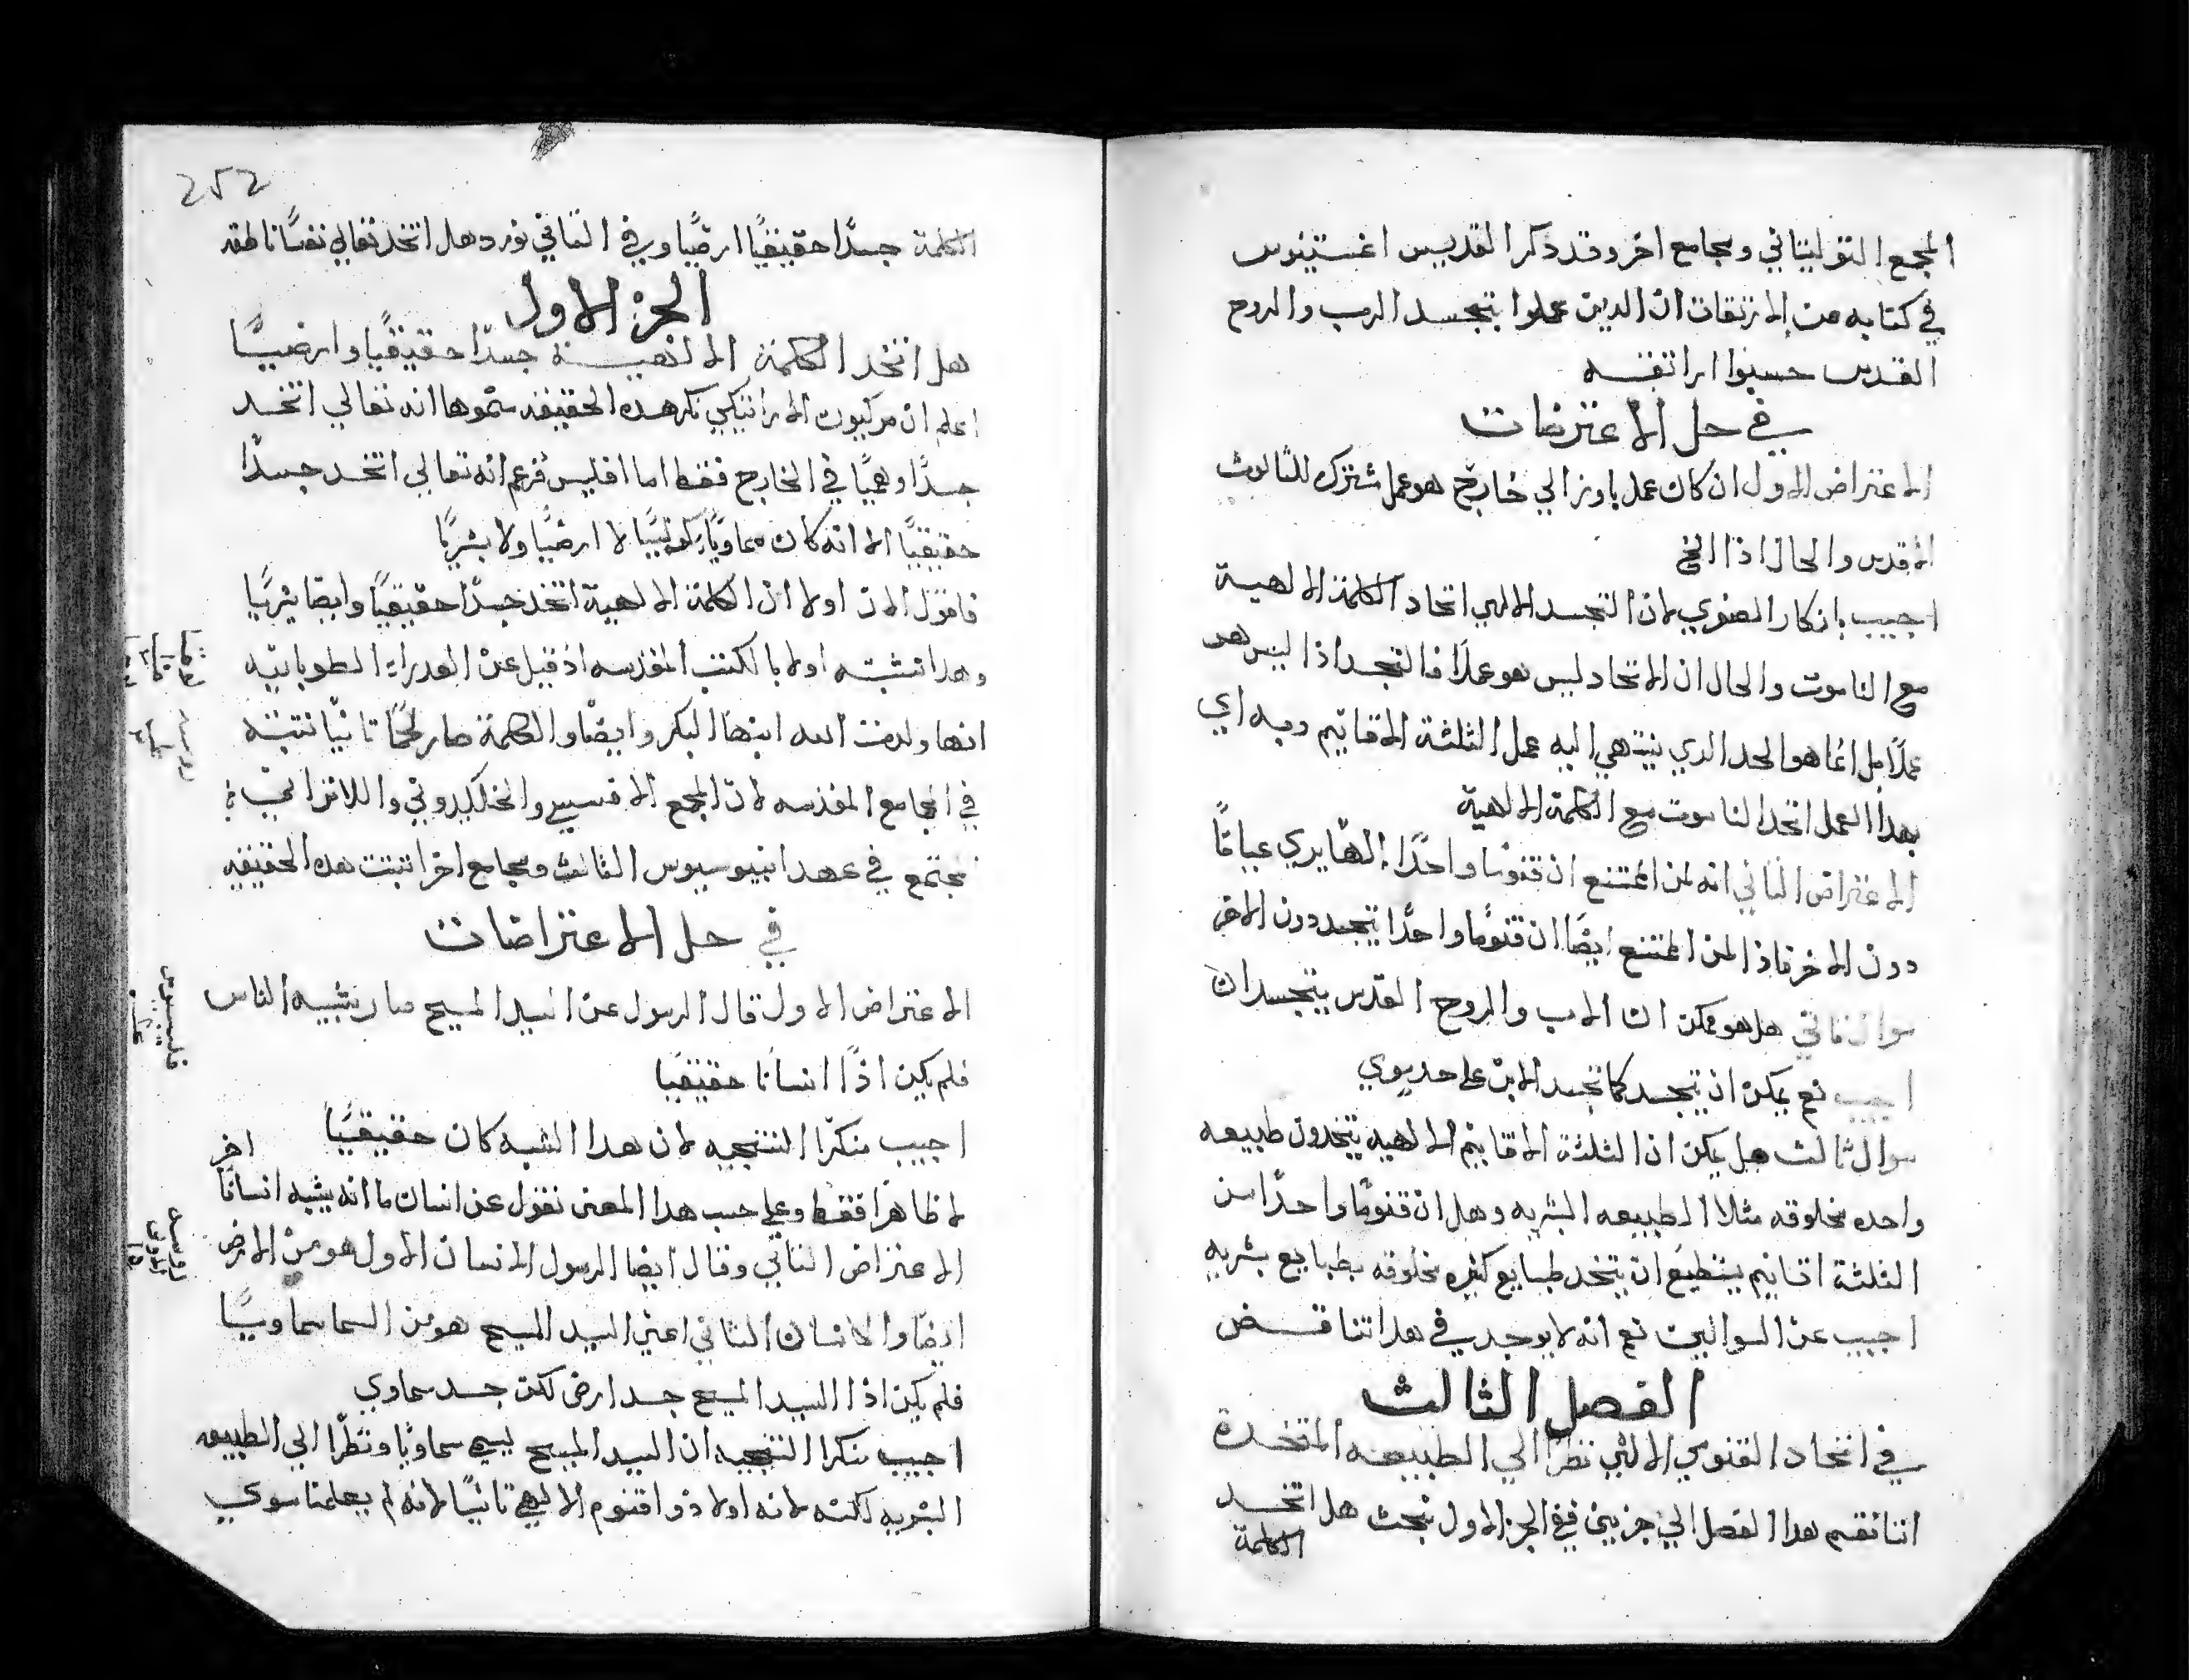 المجمع التوليتاني ومجامع اخر وقد ذكر القديس اغستينوس
في كتابه من الارتقات ان الدين عملوا بتجسد الرب والروح
القدس حسبوا اراتقه
في حل الاعتزضات
الاعتراض الاول ان كان عمل بارز الي خارج هو عمل مشترك للثالوث
الاقدس والحال اذا الخ
اجيب بانكار الصغري لان التجسد الالهي اتحاد الكلمة الالهية
مع الناسوت والحال ان الاتحاد ليس هو عملًا فالتجسد اذا ليس هو
عملًا بل انما هو الحد الدي ينتهي اليه عمل الثلثة الاقانيم وبه اي
بهدا العمل اتحد الناسوت مع الكلمة الالهية
الاعتراض الثاني انه لمن الممتنع ان قنومًا واحدًا الهًا يري عيانًا
دون الاخر فاذا لمن الممتنع ايضًا ان قنومًا واحدًا يتجسد دون الاخر
سوال ثاني هل هو ممكن ان الاب والروح القدس يتجسدان
اجيب نعم يمكن ان يتجسد كما تجسد الابن علي حد سوي
سوال ثالث هل يمكن ان الثلثة الاقانيم الالهيه يتخدون طبيعه
واحده مخلوقه مثلا الطبيعه البشريه وهل ان قنومًا واحدًا من
الثلثة اقانيم يستطيع ان يتخد طبايع كثيره مخلوقه بطبايع بشريه
اجيب عن السوالين نعم انه لا يوجد في هدا تناقض
الفصل الثالث
في اتحاد القنومي الالهي نظرًا الي الطبيعه المتخدة
اننا نقسم هدا الفصل الي جزيين ففي الجز الاول نبحث هل اتخد
الكلمة
252
الكلمة جسدًا حقيقيًا ارضيًا وفي الثاني نورد هل اتخذ تعالي نفسًا ناطقه
الجز الاول
هل اتخد الكلمة الالهية جسدًا حقيقيًا وارضيًا
اعلم ان مركيون الاراتيكي نكر هده الحقيقه بتموها انه تعالي اتخد
جسدًا وهميًا في الخارج فقط اما افليس فزعم انه تعالي اتخد جسدًا
حقيقيًا الا انه كان سماويًا كوكبيًا لا ارضيًا ولا بشريًا
فاقول الان اولا ان الكلمة الالهية اتخذ جسدًا حقيقيًا وايضا بشريًا
وهدا نثبته اولا بالكتب المقدسه اذ قيل عن العدراء الطوبانيه
انها ولدت الله ابنها البكر وايضًا والكلمة صار لحمًا ثانيًا نثبته
في المجامع المقدسه لان المجمع الافسسي والخلكيدوني واللاتراني
مجتمع في عهد انيوسيوس الثالث ومجامع اخر اثبتت هده الحقيقه
في حل الاعتراضات
الاعتراض الاول قال الرسول عن السيد المسيح صار بشبه الناس
فلم يكن اذًا انسانا حقيقيا
اجيب منكرًا النتيجه لان هدا الشبه كان حقيقيًا
لا ظاهرًا فقط وعلي حسب هدا المعني نقول عن انسان ما انه يشبه انسانًا اخر
الاعتراض الثاني وقال ايضا الرسول الانسان الاول هو من الارض
ارضيا والانسان الثاني اعني السيد المسيح هو من السما سماويًا
فلم يكن اذا للسيد المسيح جسد ارضي لكن جسد سماوي
اجيب منكرا النتيجه ان السيد المسيح ليسمي سماويًا ونظرًا الي الطبيعه
البشريه لكنه لانه اولا ذو اقنوم الالهي ثانيًا لانه لم يعلمنا سوي